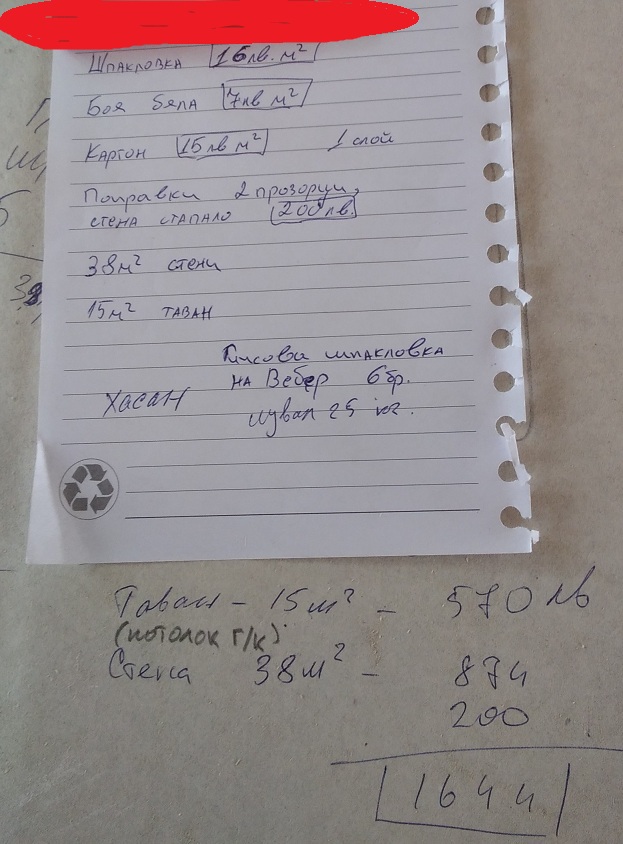 Шпакловка 16лв. м²
Боя бяла 7лв м²
Картон 15лв м² 1 слой
Поправки 2 прозорци,
стена стапало 200лв.
38м² стени
15м² таван
Гипсова шпакловка
на Вебер 6 бр.
Хасан
чувал 25 кг.
Таван - 15м² - 570 лв
(потолок г/к)
Стена 38м² - 874
200
1644